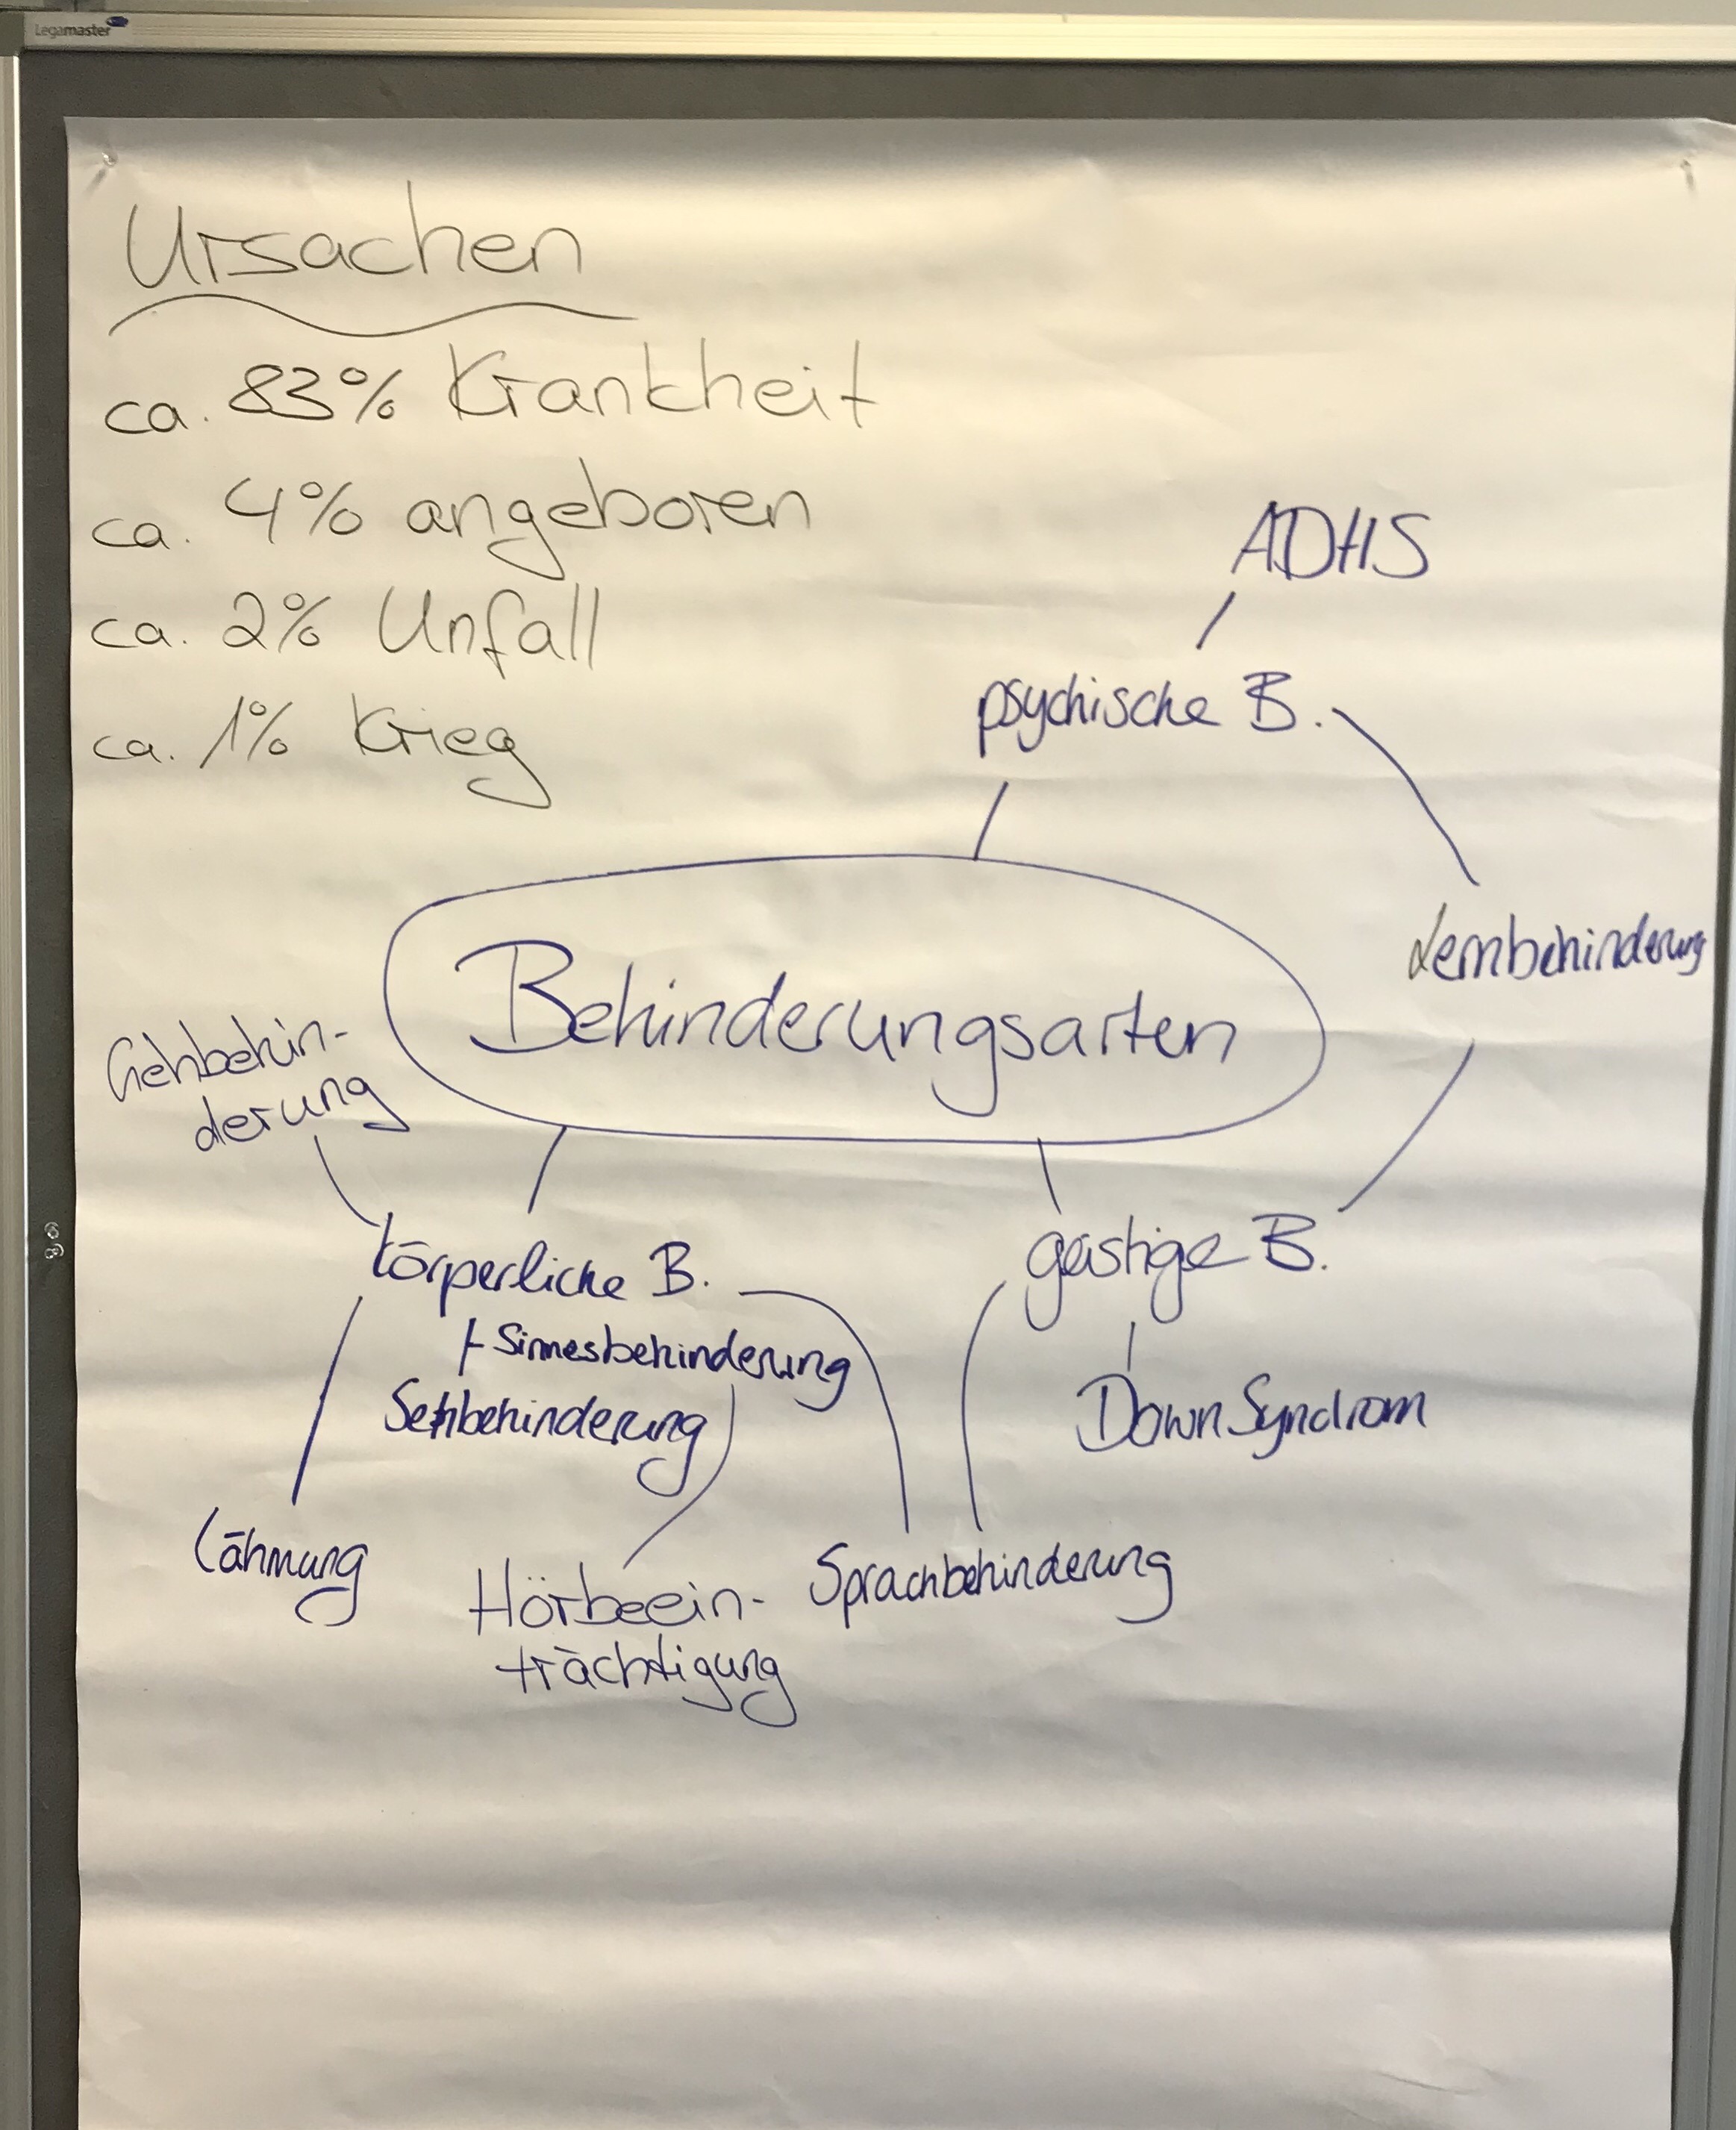 Legamaster
Ursachen
ca. 83% Krankheit
ca. 4% angeboren
ca. 2% Unfall
ca. 1% Krieg
ADHS
psychische B.
Lernbehinderung
Behinderungsarten
Gehbehin-
derung
körperliche B.
geistige B.
+ Sinnesbehinderung
Sehbehinderung
Down Syndrom
Lähmung
Hörbeein-
trächtigung
Sprachbehinderung